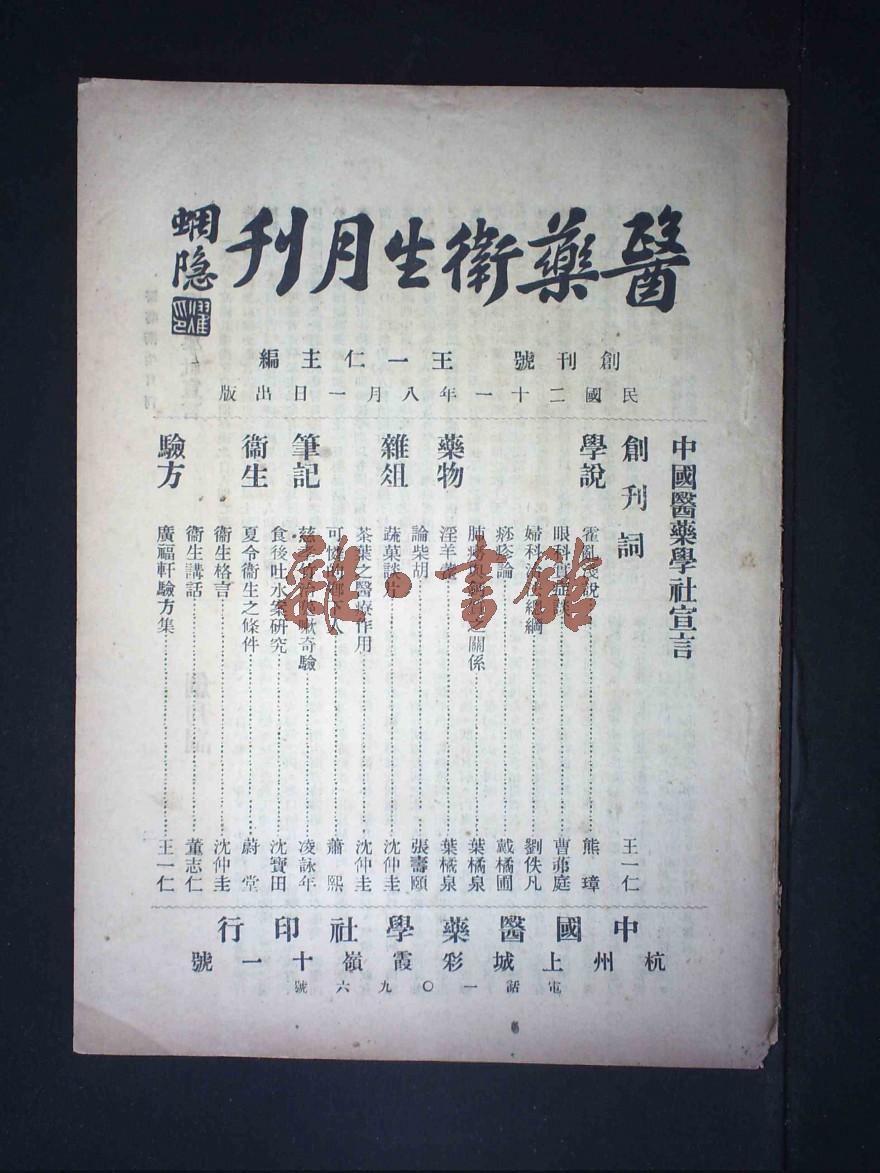 醫藥衛生月刊
蜩隐
創刊號 王一仁主編
民國二十一年八月一日出版
中國醫藥學社宣言
創刊詞 王一仁
學說
霍亂淺說 熊璋
眼科 曹荊庭
婦科 總綱 劉佚凡
痧疹論 戴橘圃
肺癆 之關係 葉橘泉
藥物
淫羊藿 葉橘泉
論柴胡 張壽頤
雜俎
蔬菓談片 沈仲圭
茶葉之醫療作用 沈仲圭
可憐 人 蕭熙
筆記
嗽奇驗 凌詠年
食後吐水案研究 沈寶田
衞生
夏令衞生之條件 蔚堂
衞生格言 沈仲圭
衞生講話 董志仁
驗方
廣福軒驗方集 王一仁
中國醫藥學社印行
杭州上城彩霞嶺十一號
電話一〇九六號
雜·書館